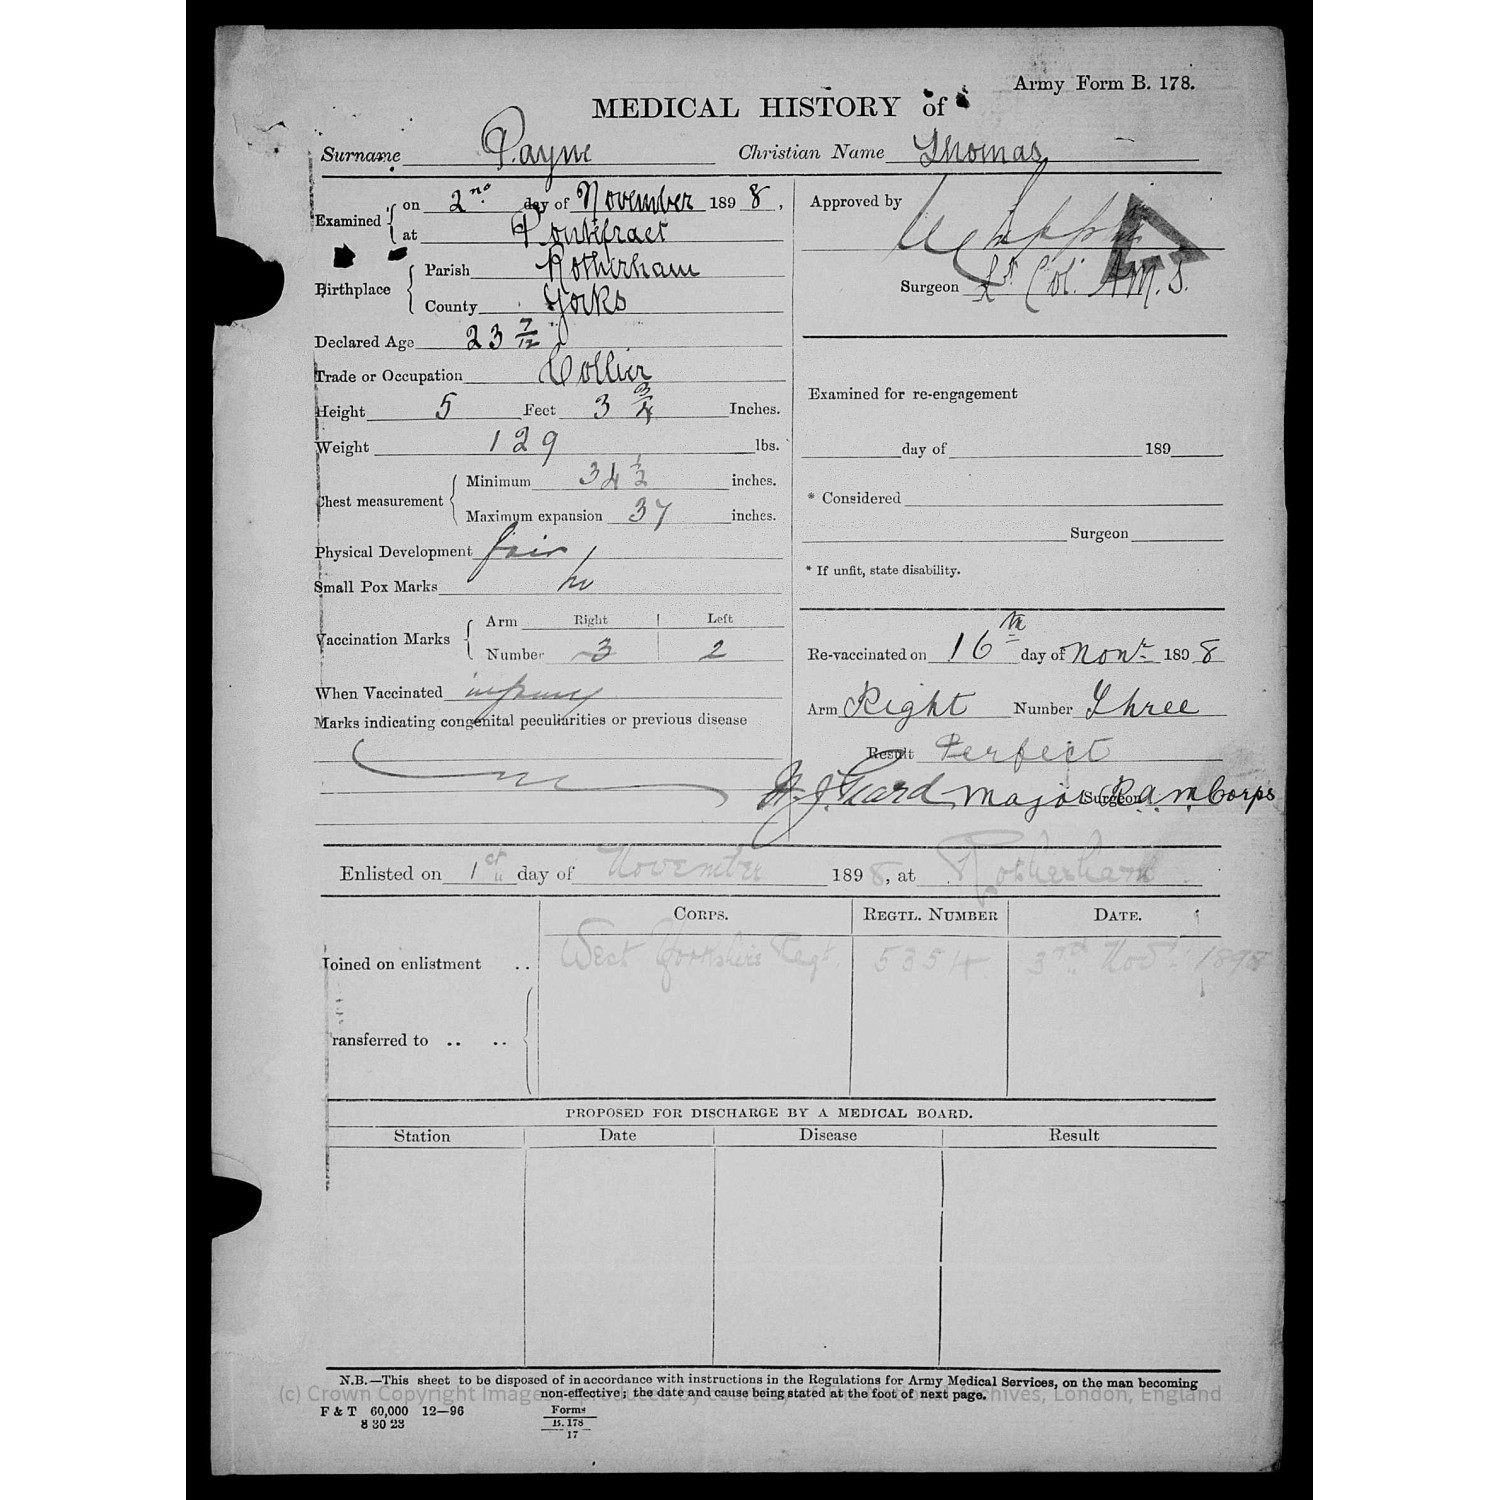 Army Form B. 178.
MEDICAL HISTORY of
Surname Payne Christian Name Thomas
Examined on 2nd day of November 1898,
at Pontefract
Birthplace Parish Rotherham
County Yorks
Declared Age 23 7/12
Trade or Occupation Collier
Height 5 Feet 3 3/4 Inches.
Weight 129 lbs.
Chest measurement Minimum 34 1/2 inches.
Maximum expansion 37 inches.
Physical Development fair
Small Pox Marks no
Vaccination Marks Arm Right Left
Number 3 2
When Vaccinated infancy
Marks indicating congenital peculiarities or previous disease
Approved by
Surgeon Lt Col. A.M.S.
Examined for re-engagement
day of 189
* Considered
Surgeon
* If unfit, state disability.
Re-vaccinated on 16th day of Novr 1898
Arm Right Number Three
Result Perfect
Major R.A.M. Corps Surgeon
Enlisted on 1st day of November 1898, at Rotherham.
CORPS. REGTL. NUMBER DATE.
Joined on enlistment .. West Yorkshire Regt. 5354. 3rd Novr 1898
ransferred to .. ..
PROPOSED FOR DISCHARGE BY A MEDICAL BOARD.
Station Date Disease Result
N.B.—This sheet to be disposed of in accordance with instructions in the Regulations for Army Medical Services, on the man becoming
non-effective; the date and cause being stated at the foot of next page.
(c) Crown Copyright Images reproduced by courtesy of The National Archives, London, England
F & T 60,000 12—96
8 30 23
Forms
B. 178
17